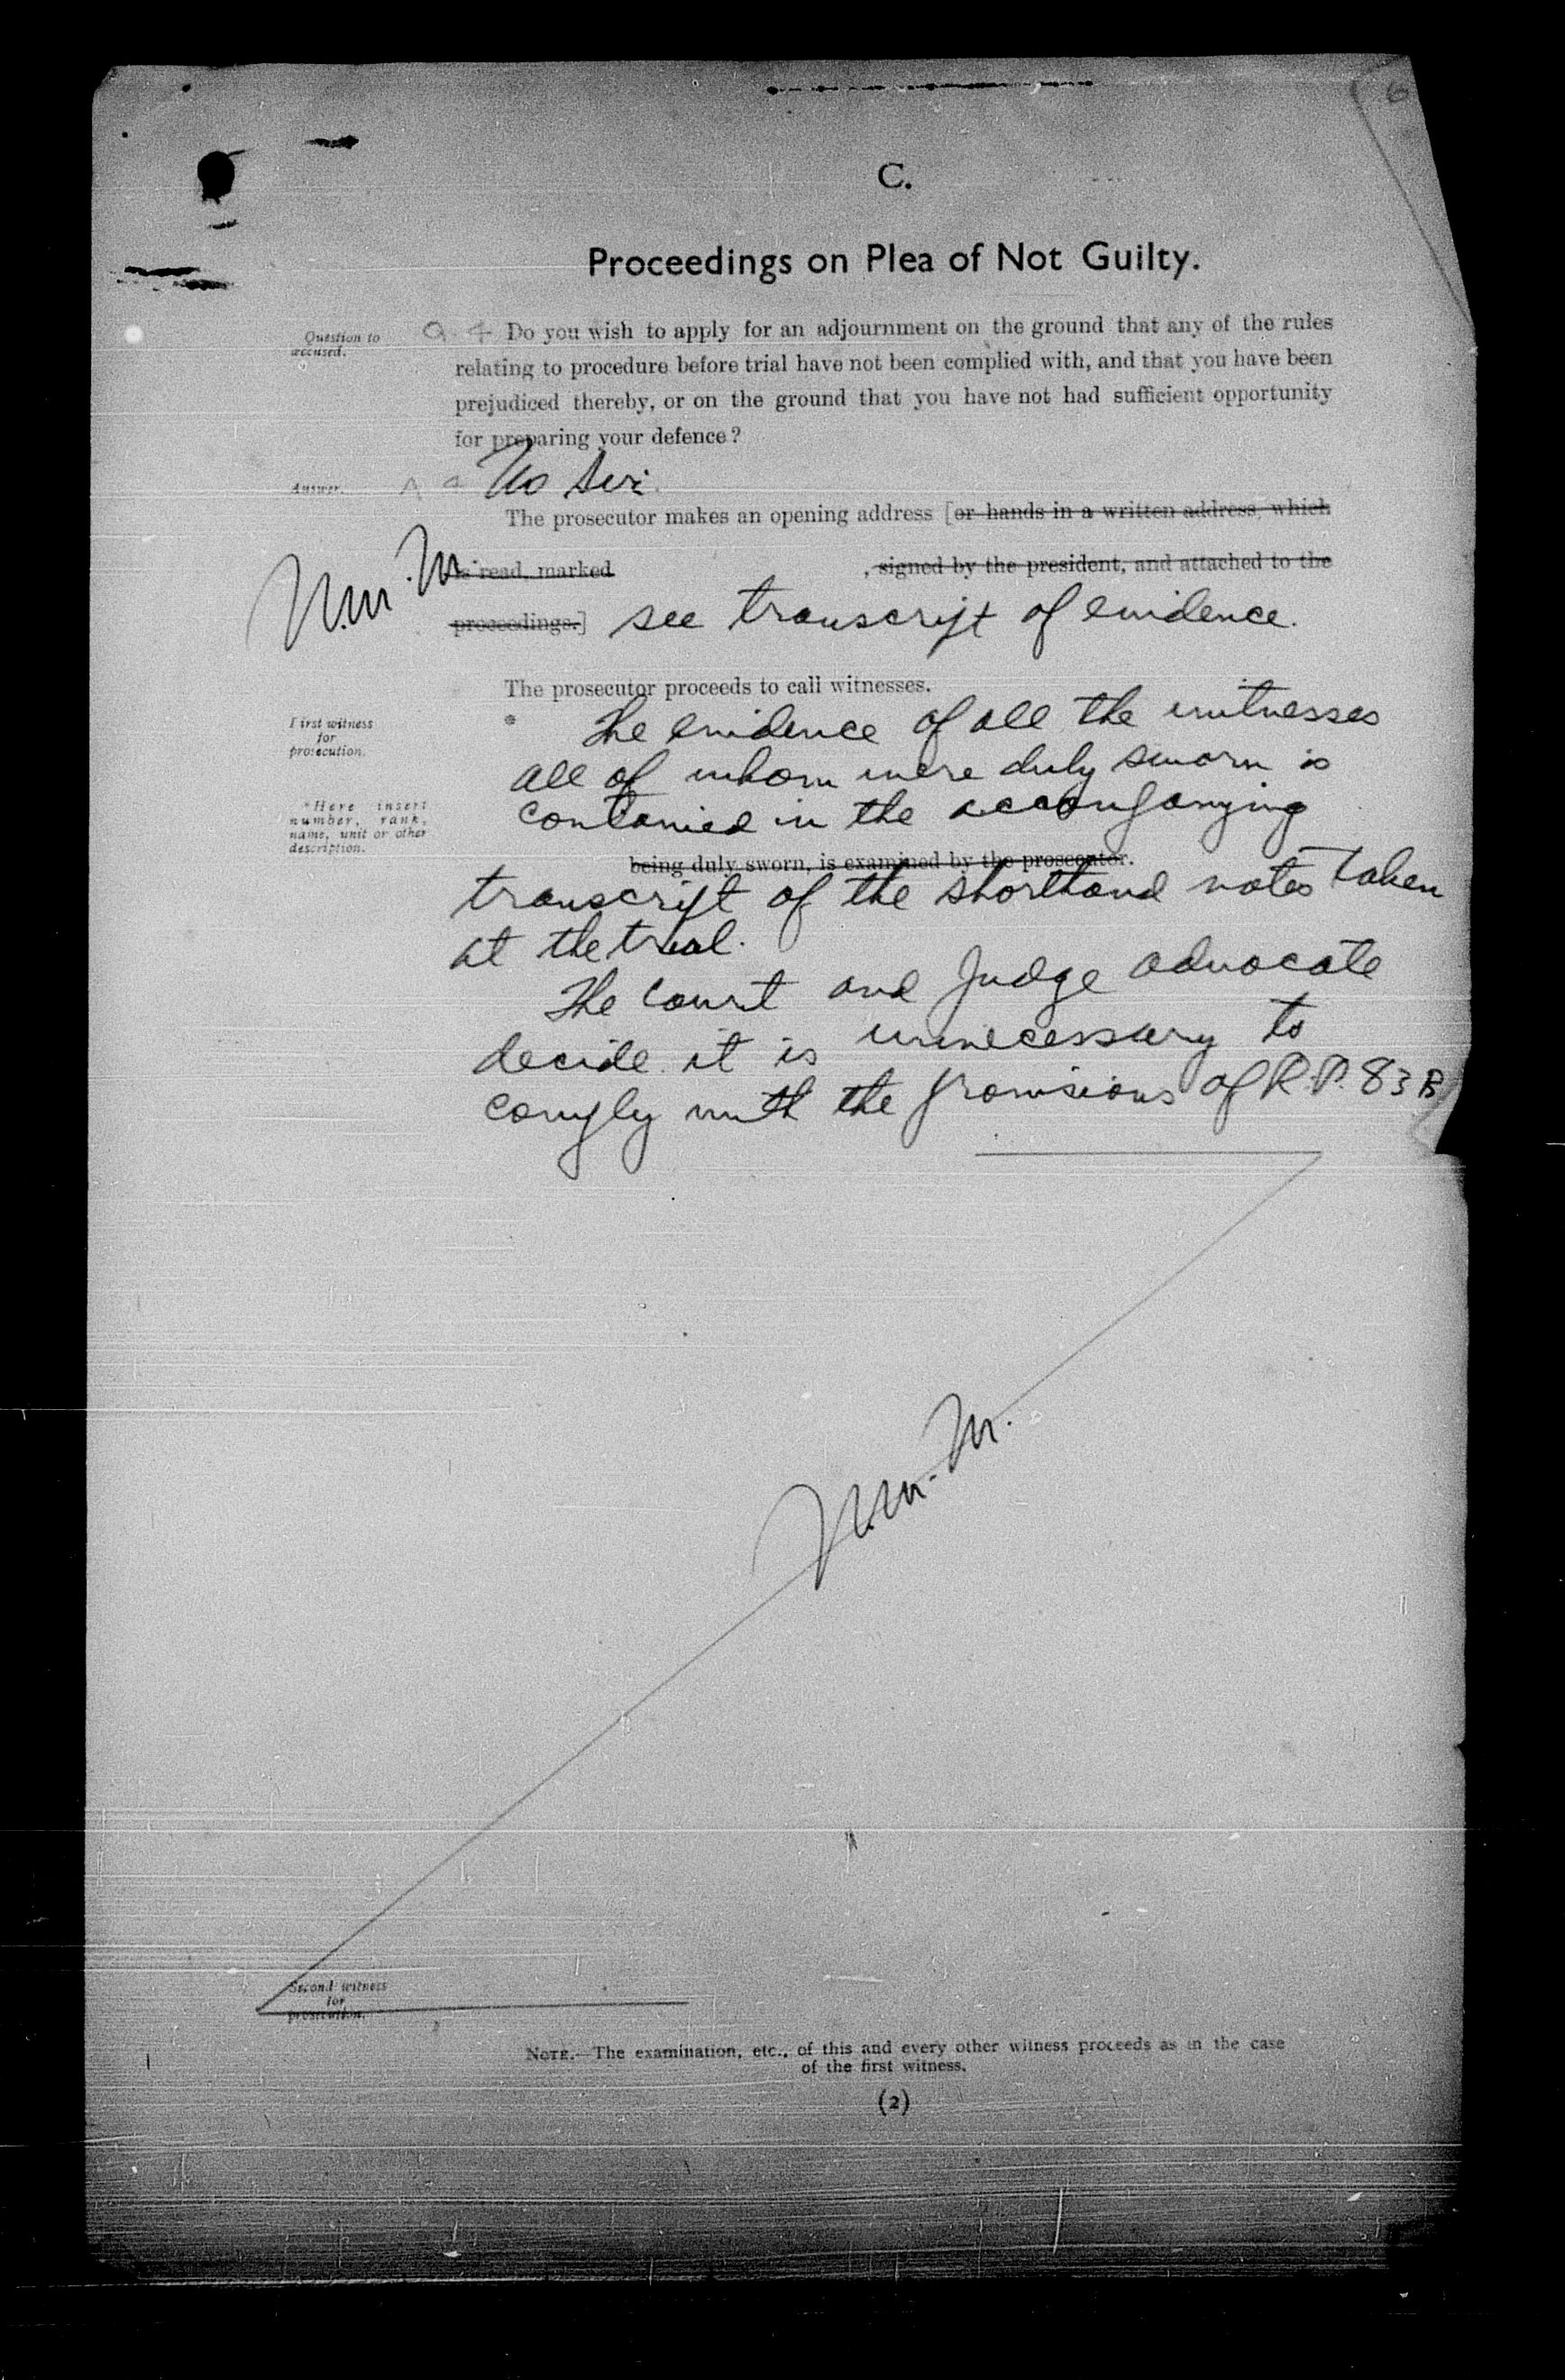 6
C.
Proceedings on Plea of Not Guilty.
Question to
accused.
Q. 4 Do you wish to apply for an adjournment on the ground that any of the rules
relating to procedure before trial have not been complied with, and that you have been
prejudiced thereby, or on the ground that you have not had sufficient opportunity
for preparing your defence?
Answer. A 4 No Sir.
The prosecutor makes an opening address [or hands in a written address, which
is read, marked , signed by the president, and attached to the
proceedings.] see transcript of evidence.
The prosecutor proceeds to call witnesses.
First witness
for
prosecution.
* The evidence of all the witnesses
all of whom were duly sworn is
contained in the accompanying
*Here insert
number, rank,
name, unit or other
description.
being duly sworn, is examined by the prosecutor.
transcript of the shorthand notes taken
at the trial.
The Court and Judge advocate
decide it is unnecessary to
comply with the provisions of R.P. 83 B
Second witness
for
prosecution.
NOTE.—The examination, etc., of this and every other witness proceeds as in the case
of the first witness.
(2)